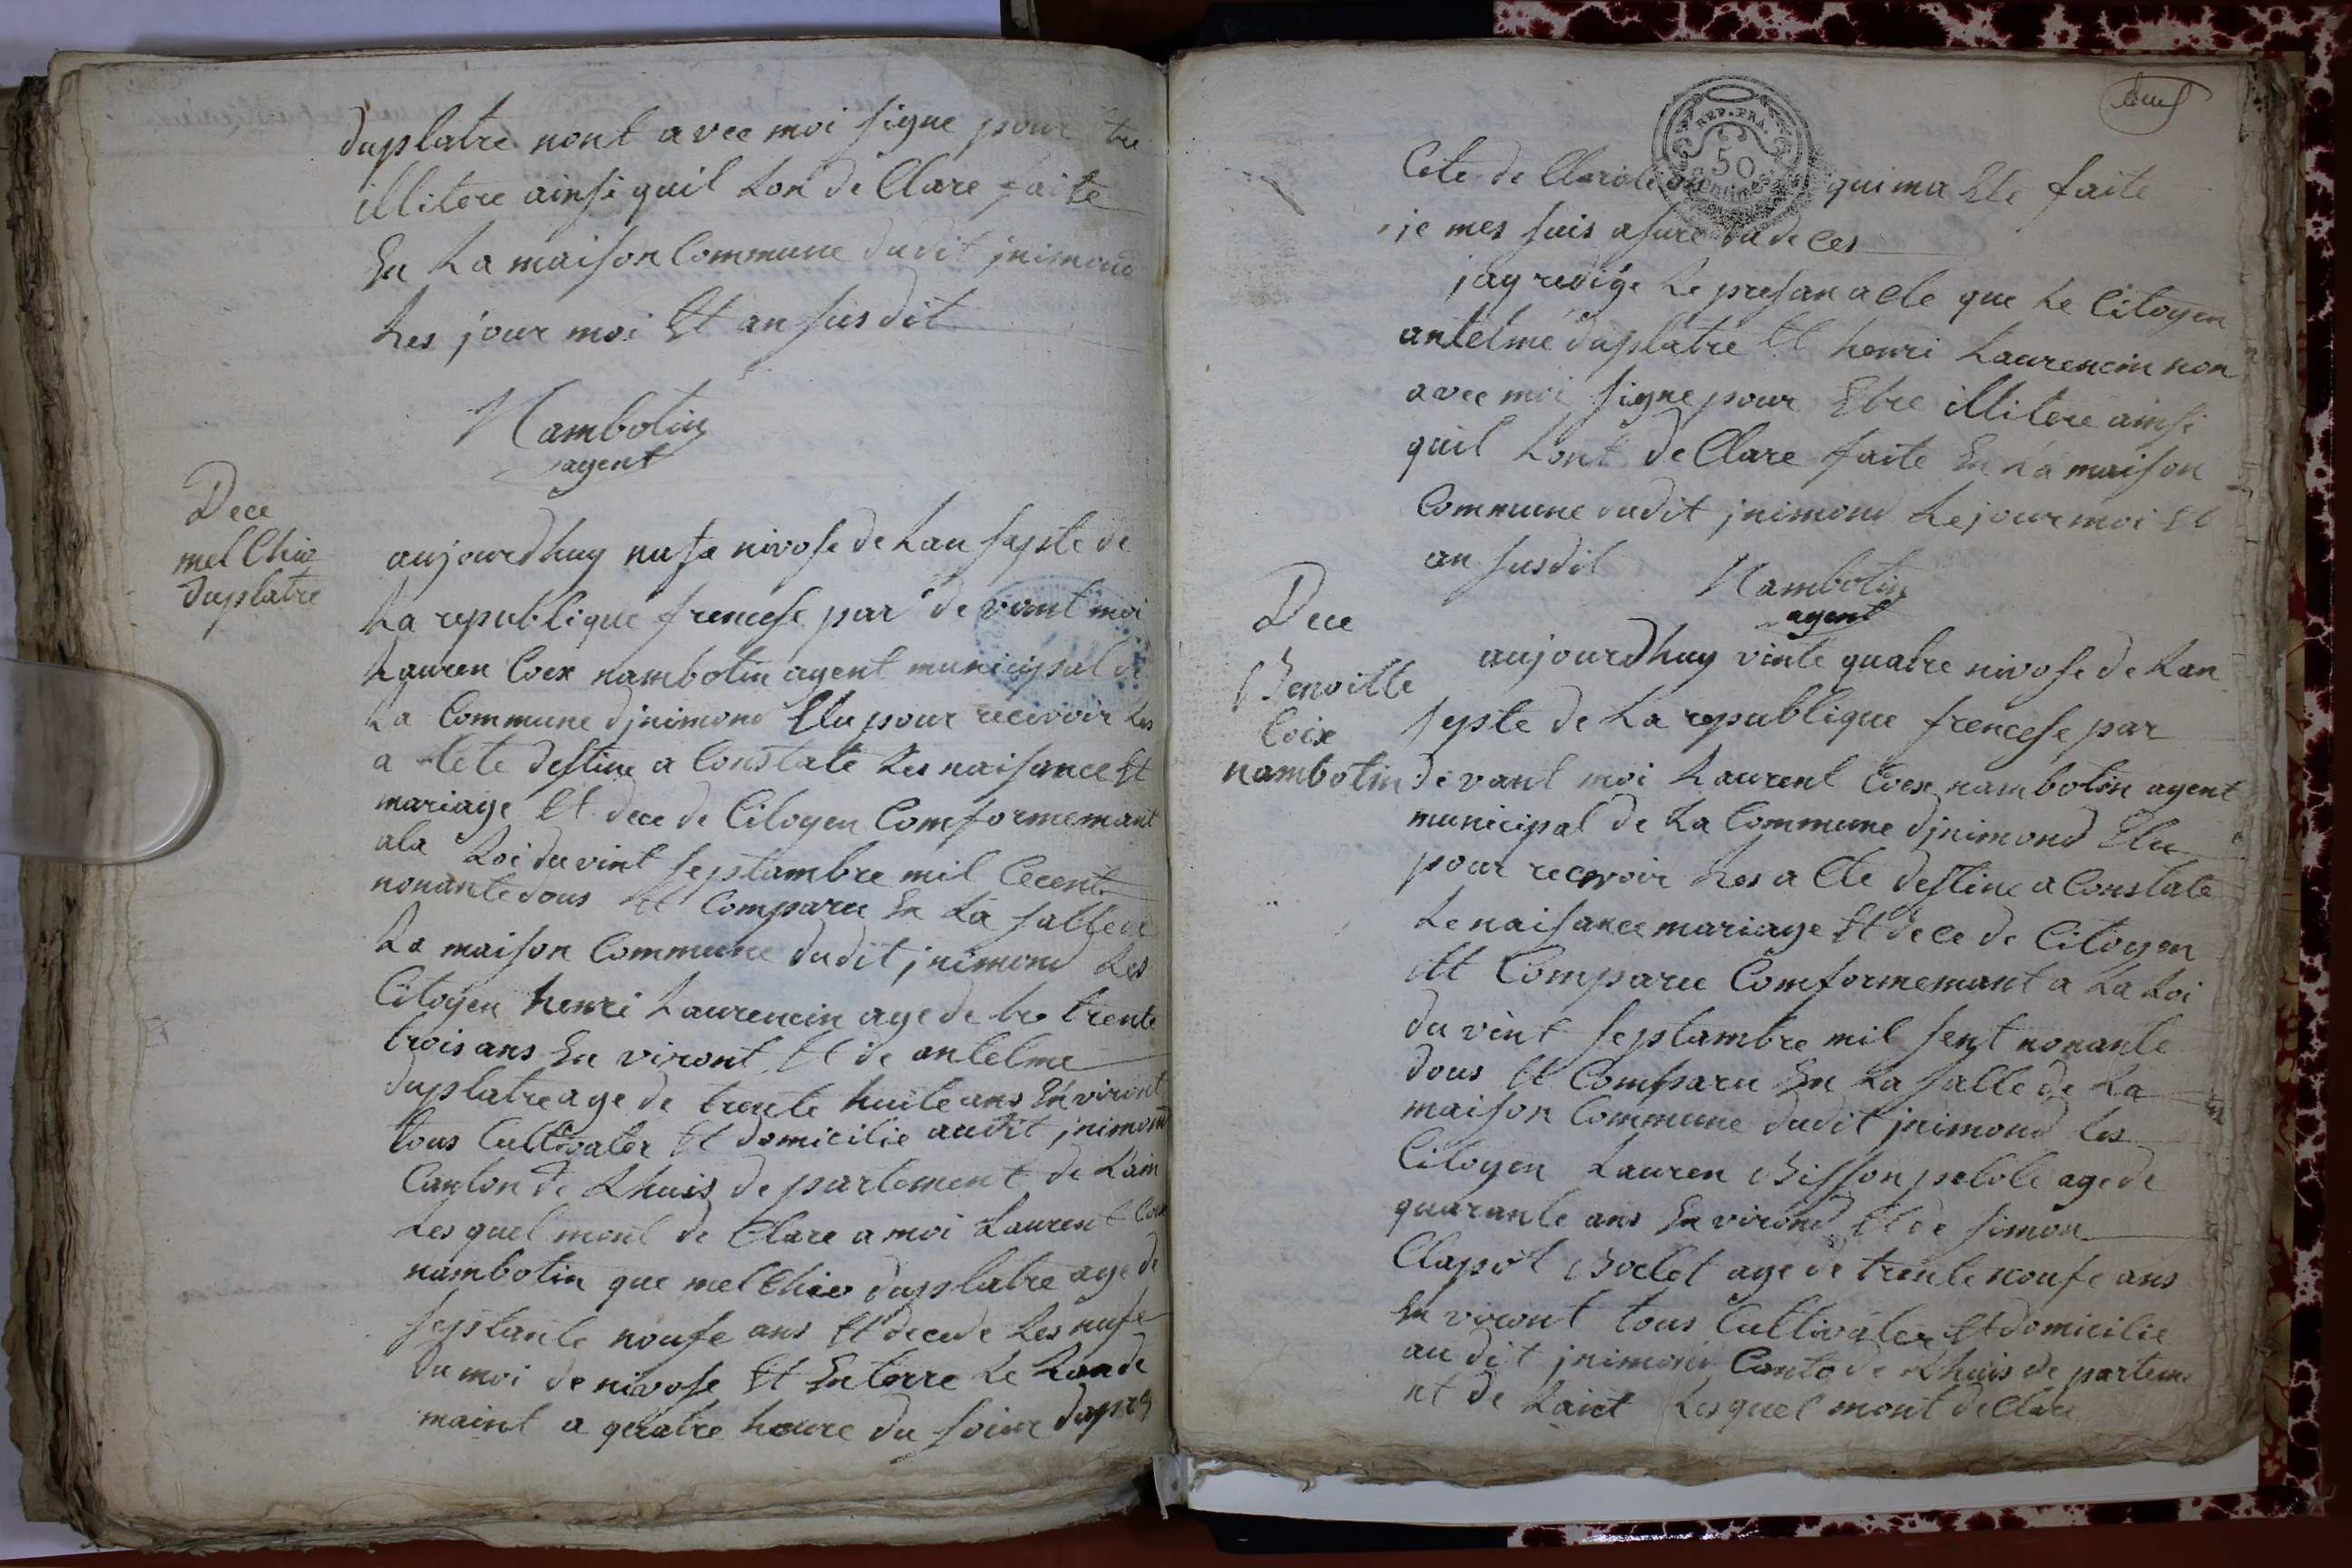 duplatre nont avec moi signe pour tre
illitere ainsi quil Lon de Clare faite
En La maison Commune dudit jnimond
Les jour moi Et an susdit
Nambotin
agent
Dece
melChio
duplatre
aujourdhuy nufe nivose de Lan septe de
La republique francese par de vant moi
Lauren Coex nambotin agent municipal de
La Commune djnimond Elu pour recevoir Les
a destine a Constate Les naisance Et
mariage Et dece de Citoyen Comformemant
ala Loi du vint septambre mil Cecent
nonante dous Et Comparu En La salle de
La maison Commune dudit jnimond Les
Citoyen henri Laurencin age de tre trente
trois ans En viront Et de antelme
duplatre age de trente huite ans En viront
tous Cultivater Et domicilie audit jnimond
Canton de Lhuis de partement de Lain
Les quel mont de Clare a moi Laurent Coex
nambotin que melChio duplatre age de
septante noufe ans Et decede Les nufe
du moi de nivose Et Enterre Le Lande
maint a qeratre heure du soire dapres
Cete de Clarole qui ma Ete faite
je mes suis asure du de ces
jay redige Le presan acte que Le Citoyen
antelme duplatre Et henri Laurencin non
avec moi signe pour Etre illitere ainsi
quil Lont de Clare faite En La maison
Commune dudit jnimond Le jour moi Et
an susdit
Nambotin
agent
REP. FRA.
50
Dece
Benoitte
Coix
nambotin
aujourdhuy vinte quatre nivose de Lan
septe de La republique francese par
de vant moi Laurent Coex nambotin agent
municipal de La Commune djnimond Elu
pour recevoir Les a Cte destine a Constate
Le naisance mariage Et de ce de Citoyen
Et Comparu Comformemant a La Loi
du vint septambre mil sent nonante
dous Et Comparu En La salle de La
maison Commune dudit jnimond les
Citoyen Lauren Bisson pelole age de
quarante ans En virond Et de simon
Clapot Boclet age de trente noufe ans
En viront tous Cultivater Et domicilie
au dit jnimond Canto de Lhuis de parteme
nt de Laint Les quel mont de Clare